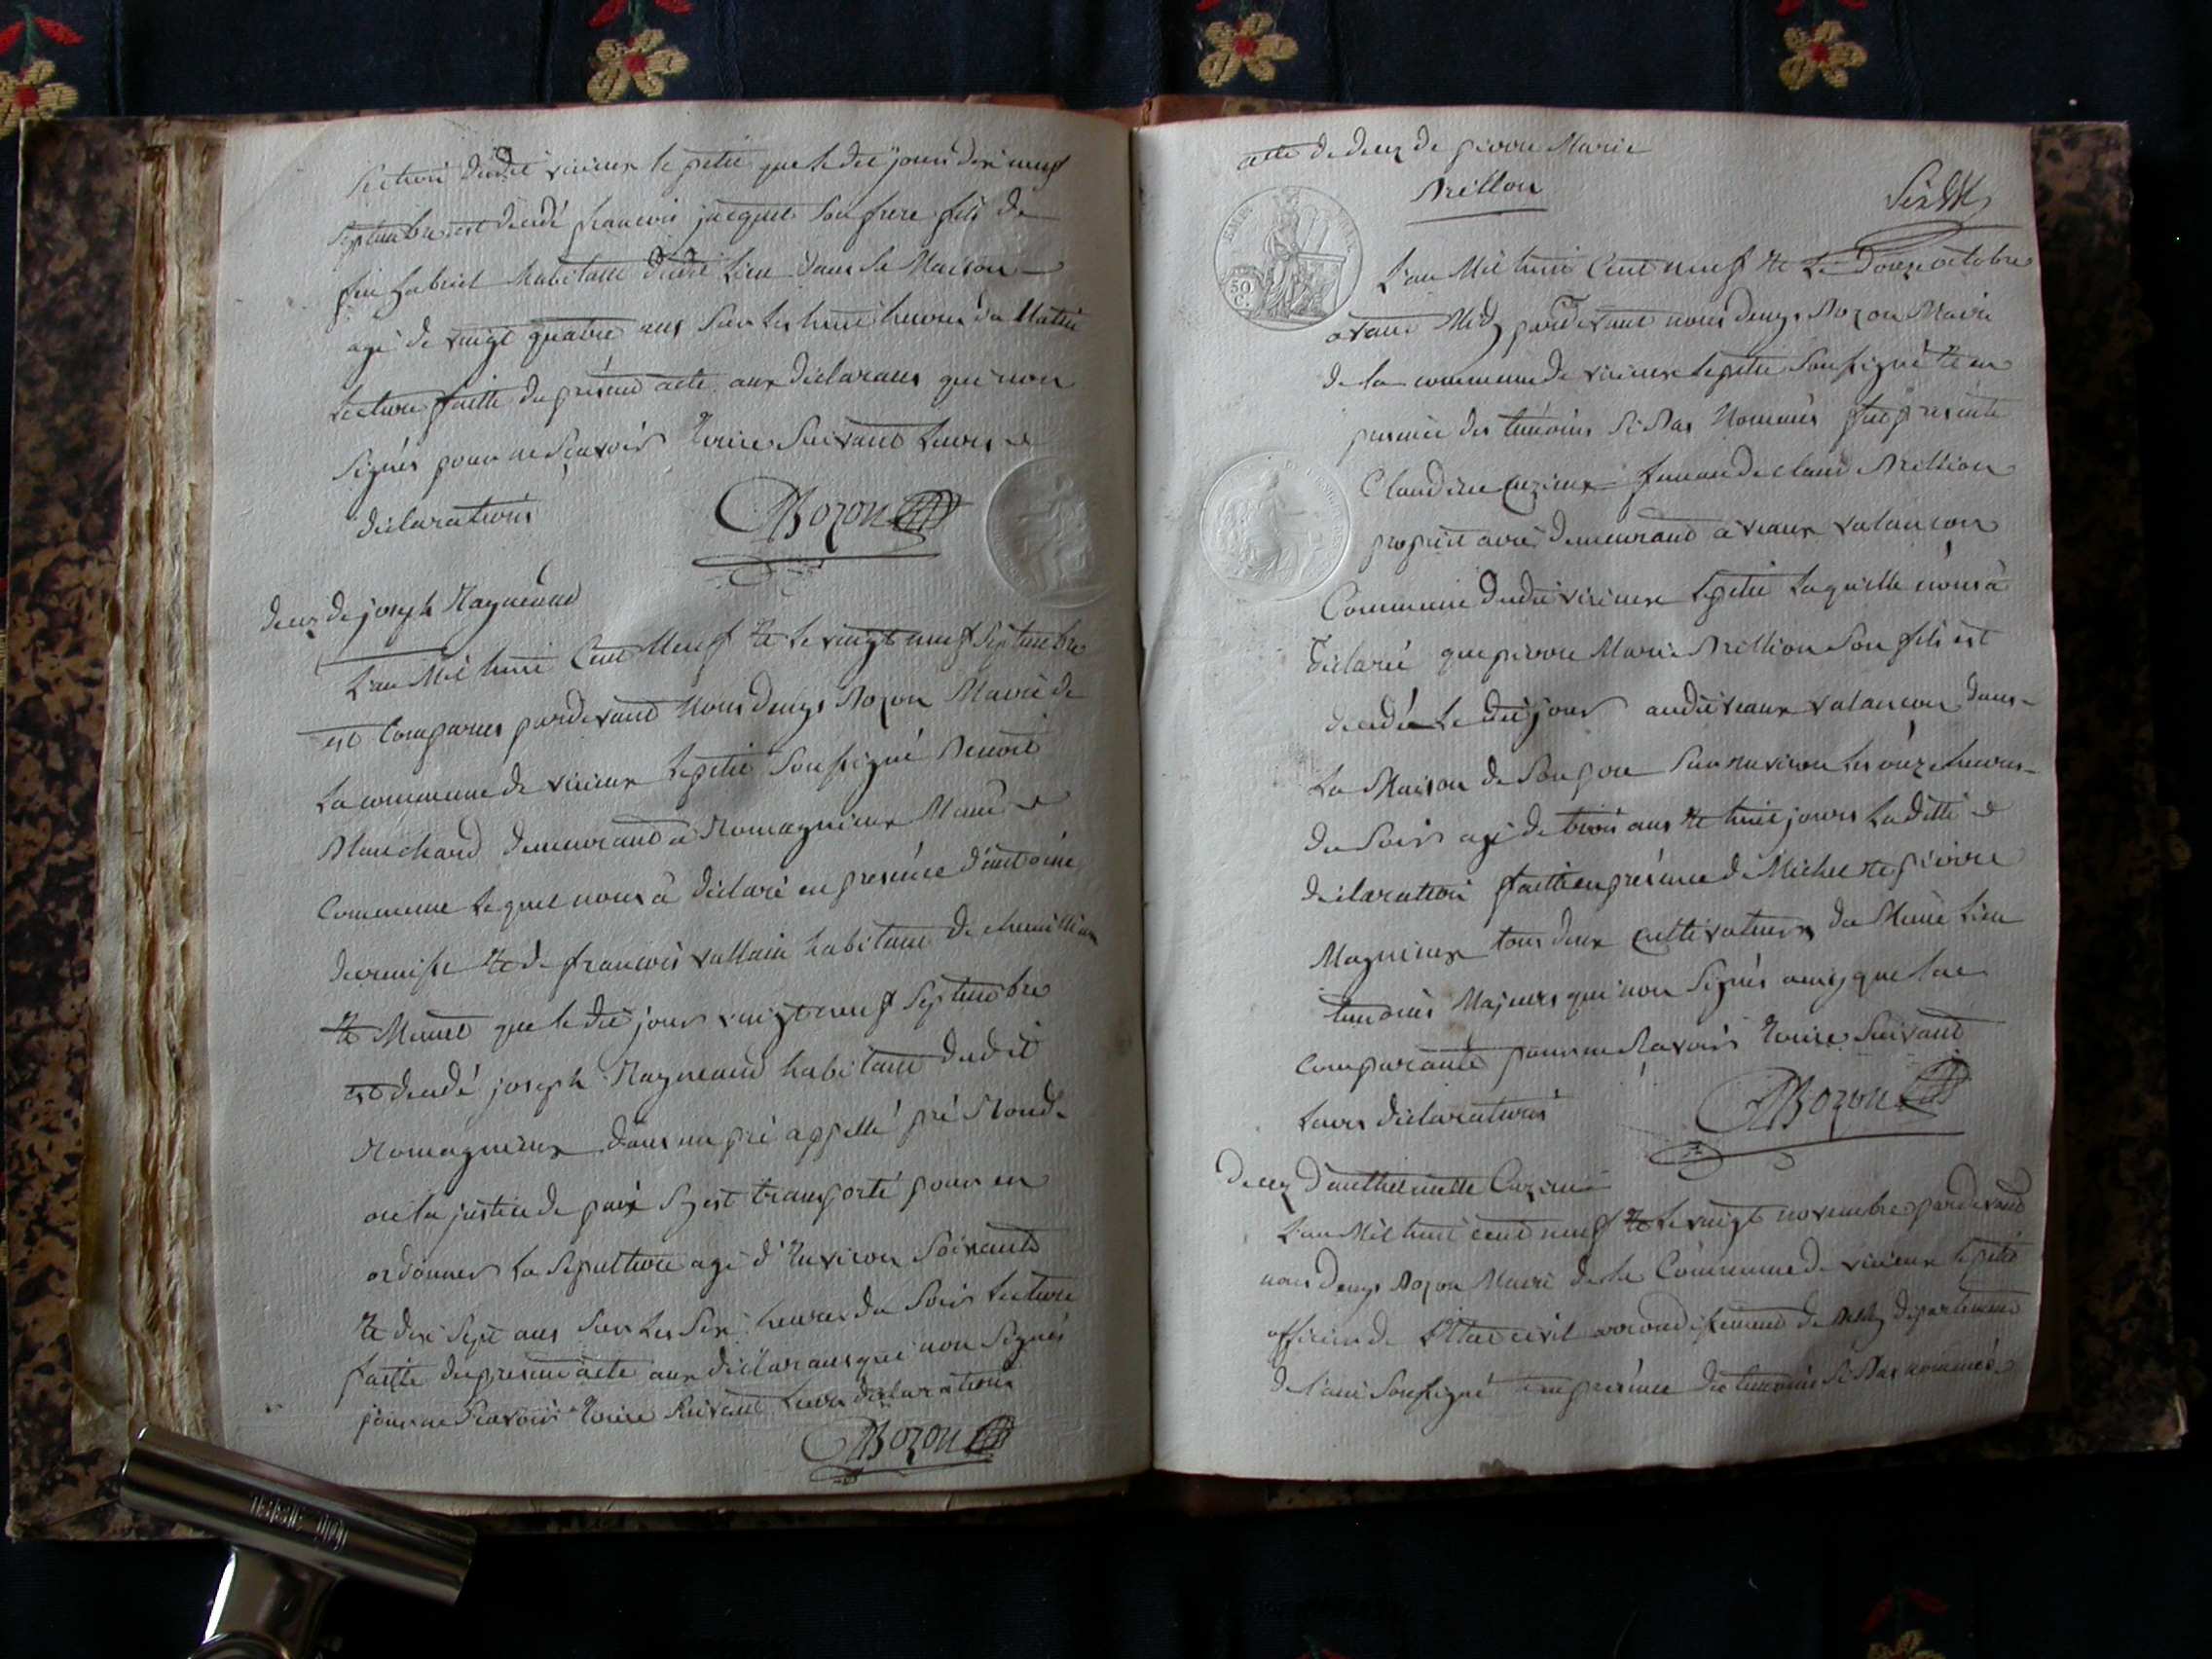 section dudit virieux le petit que le dit jour dix neuf
septembre est décédé francois jacquet son frere fils de
feu gabriel habitant dudit lieu dans sa Maison
agé de vingt quatre ans sur les huit heures du Matin
Lecture faitte du présent acte aux déclarans qui non
signés pour ne sçavoir Ecrire suivant Leurs
déclarations
DBozon
decez de joseph Magneand
L'an Mil huit Cent Neuf et le vingt neuf septembre
est Comparus pardevant Nous denys Bozon Maire de
La commune de virieux Lepetit soussigné Benoit
Blanchard demeurant à Romagnieux Mame
Commune Lequel nous à déclaré en présence d'antoine
et de francois vallain habitant de
et Munet que le dit jour vingt neuf septembre
est décédé joseph Magneand habitant dudit
Romagnieux dans un pré appellé pré Rond
ou la justice de paix s'y est transporté pour en
ordonner la sepulture agé d'Environ soixante
et dix sept ans sur les six heures du soir Lecture
faitte du present acte aux déclarans qui non signés
pour ne sçavoir Ecrire suivant Leurs déclarations
DBozon
acte de decez de pierre Marie
Brillon
Six
L'an Mil huit Cent neuf et Le Douze octobre
avant Midy pardevant nous denys Bozon Maire
de la commune de virieux lepetit soussigné et en
presence des témoins si Bas Nommés fut presente
Claudine Cuzieux femme de claud Brillion
proprietaire demeurant à vaux valancon
Commune dudit virieux Lepetit Laquelle nous à
déclaré que pierre Marie Brillion son fils est
décédé Le dit jour audit vaux valancon dans
La Maison de son pere sur environ les onze heures
du soir agé de trois ans et huit jours La ditte
déclaration faitte en présence de Michel et pierre
Magnieux tous deux cultivateurs du Même Lieu
temoins Majeurs qui non signés ainsy que la
Comparante pour ne savoir Ecrire suivant
Leurs déclarations
DBozon
decez d'anthelmette Cuzieux
L'an Mil huit cent neuf et Le vingt novembre pardevant
nous denys Bozon Maire de la Commune de virieux Lepetit
officier de L'Etat civil arrondissement de Belley département
de l'ain soussigné en présence des temoins si Bas nommés
50
C.